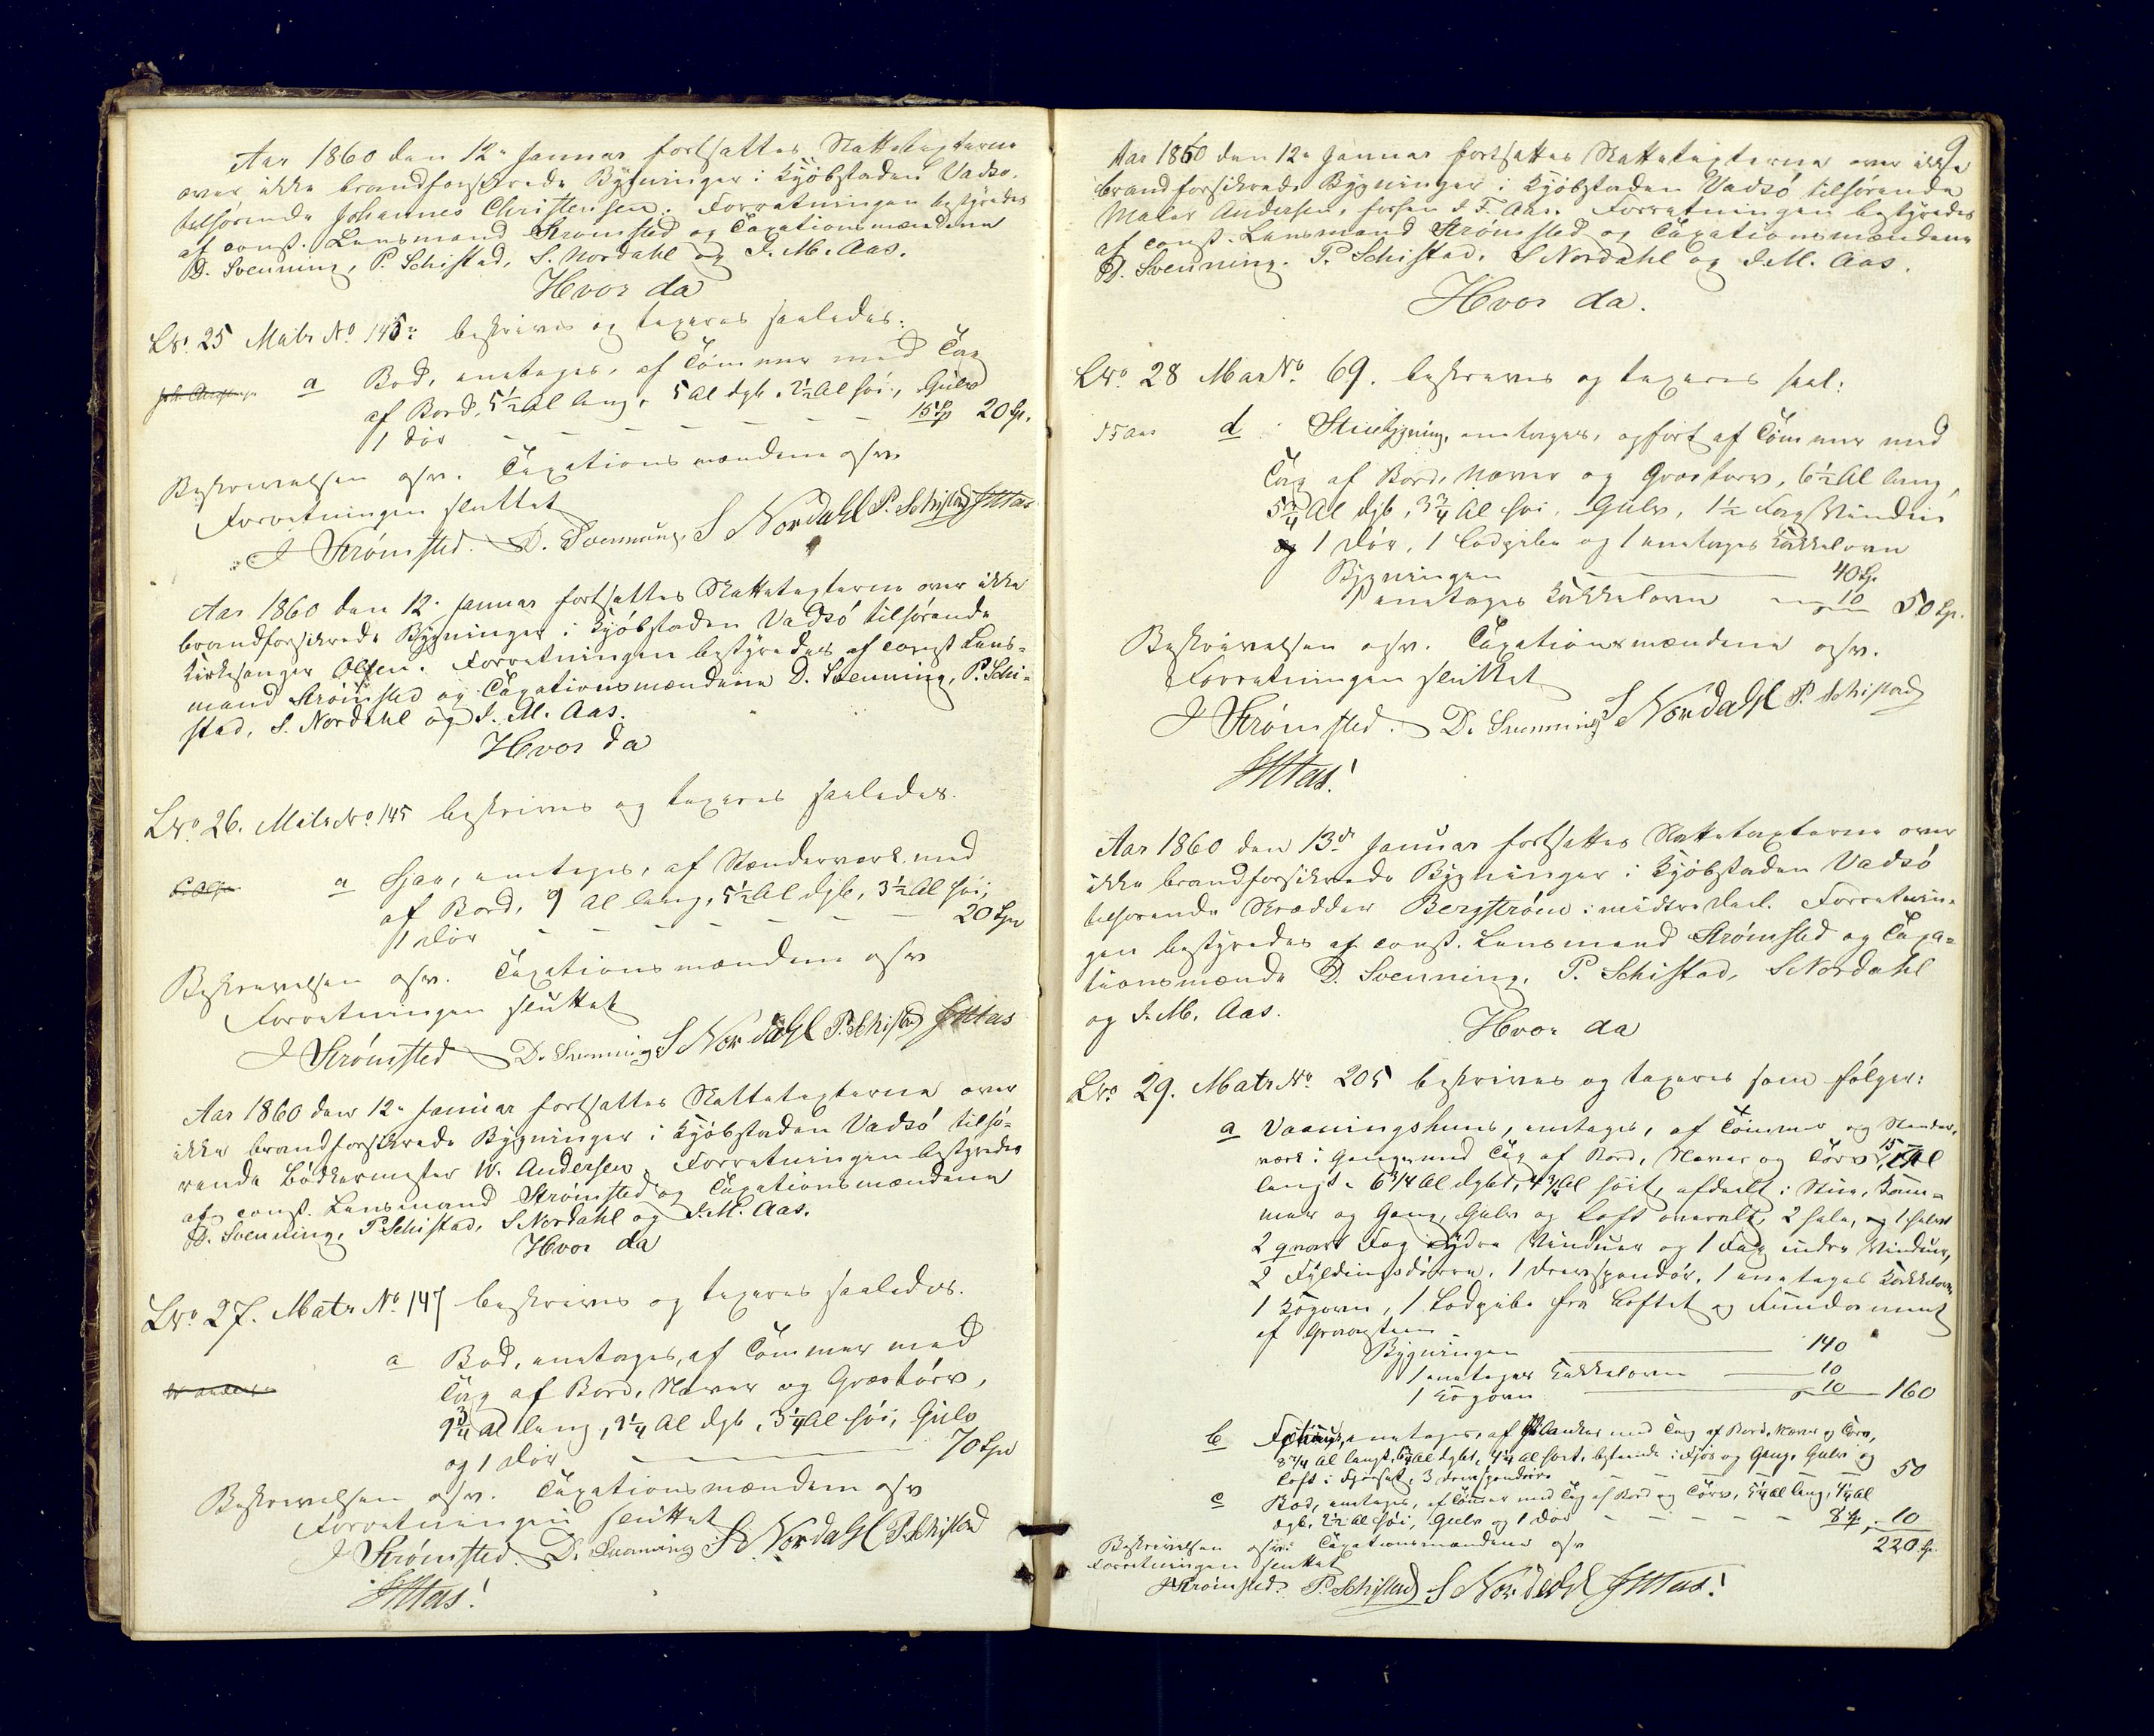 Aar 1860 den 12te Januar fortsattes Skattetaxterne
over ikke brandforsikrede Bygninger i Kjøbstaden Vadsø.
tilhørende Johannes Christensen. Forretningen bestyredes
af const. Lensmand Strømsted og Taxationsmændene
D. Svenning, P. Schistad, S. Nordahl og J. M. Aas.
Hvor da
Lno. 25 Matr No 145: beskrives og taxeres saaledes:
a Bod, eenetages, af Tømmer med Tag
af Bord, 5½ Al lang, 5 Al dyb, 2½ Al høi, Gulv
1 Dør - - - - - - 15 Sp 20 Sp.
Beskrivelsen osv. Taxationsmændene osv.
Forretningen sluttet
J Strømsted. D. Svenning. S Nordahl P. Schistad JMAas
Aar 1860 den 12te Januar fortsattes Skattetaxterne over ikke
brandforsikrede Bygninger i Kjøbstaden Vadsø tilhørende
Kirkesanger Olsen. Forretningen bestyredes af const Lens-
mand Strømsted og Taxationsmændene D. Svenning, P. Schi-
stad, S. Nordahl og J. M. Aas.
Hvor da
Lno 26. Matr No 145 beskrives og taxeres saaledes.
a Sjaa, eenetages, af Stænderværk med
af Bord, 9 Al lang, 5½ Al dyb, 3½ Al høi,
1 Dør - - - - - - 20 Spd
Beskrivelsen osv. Taxationsmændene osv
Forretningen sluttet
J Strømsted D. Svenning S Nordahl P. Schistad JMAas
Aar 1860 den 12te Januar fortsattes Skattetaxterne over
ikke brandforsikrede Bygninger i Kjøbstaden Vadsø tilhø-
rende Bødkermester W. Andersen. Forretningen bestyredes
af const. Lensmand Strømsted og Taxationsmændene
D. Svenning, P Schistad, S Nordahl og J. M. Aas.
Hvor da
Lno 27. Matr No 147 beskrives og taxeres saaledes.
a Bod, eenetages, af Tømmer med
W Andersen
Tag af Bord, Næver og Græstørv,
9¾ Al lang, 9¼ Al dyb, 3¼ Al høi, Gulv
og 1 Dør 70 Spd
Beskrivelsen osv. Taxationsmændene osv
Forretningen sluttet
J Strømsted. D. Svenning S Nordahl P. Schistad
JMAas!
9
Aar 1860 den 12te Januar fortsattes Skattetaxterne over ikke
brandforsikrede Bygninger i Kjøbstaden Vadsø tilhørende
Maler Andersen, forhen J. F. Aas. Forretningen bestyredes
af const. Lensmand Strømsted og Taxationsmændene
D. Svenning. P. Schistad, S Nordahl og J. M. Aas.
Hvor da.
Lno. 28 Mar No. 69. beskrives og taxeres saal:
J F Aas d Stuebygning, eenetages, opført af Tømmer med
Tag af Bord, Næver og Græstørv, 6½ Al lang,
5¾ Al dyb, 3¾ Al høi, Gulv, 1½ Fag Vinduer
og 1 Dør, 1 Lodpibe og 1 eenetages Kakkelovn
Bygningen 40 Sp.
1 eenetages Kakkelovn 10 50 Sp.
Beskrivelsen osv. Taxationsmændene osv.
Forretningen sluttet
J Strømsted. D. Svenning S Nordahl P. Schistad
JMAas!
Aar 1860 den 13de Januar fortsattes Skattetaxterne over
ikke brandforsikrede Bygninger i Kjøbstaden Vadsø
tilhørende Skrædder Bergstrøm i midtre Deel. Forretnin-
gen bestyredes af const. Lensmand Strømsted og Taxa-
tionsmænde D. Svenning, P. Schistad, S Nordahl
og J. M. Aas.
Hvor da
Lno. 29. Matr No. 205 beskrives og taxeres som følger:
a Vaaningshuus, eenetages, af Tømmer og Stænder-
værk i Gangen med Tag af Bord, Næver og Tørv, 15 Al
langt, 6¾ Al dybt, 4¾ Al høit, afdeelt i Stue, Kam-
mer og Gang, Gulv og Loft overalt, 2 hele, 1 halvt
2 qvart Fag ydre Vinduer og 1 Fag indre Vinduer,
2 Fyldingsdørre, 1 Drevspondør, 1 eenetages Kakkelovn
1 Kogovn, 1 Lodpibe fra Loftet og Fundament
af Graasteen
Bygningen 140
1 eenetages Kakkelovn 10
1 Kogovn 10 160
b Fjøshuus, eenetages, af Planker med Tag af Bord, Næver og Tørv,
8¾ Al langt, Al dybt, 4¼ Al høit, bestaaende i Fjøs og Gang, Gulv og
Loft i Fjøset, 3 Drevspondørre 50
c Bod, eenetages, af Tømmer med Tag af Bord og Tørv, 5¼ Al lang, 4¼ Al
dyb, 2½ Al høi, Gulv og 1 Dør - - - - - 8 Sp. 10
Beskrivelsen osv. Taxationsmændene osv 220 Sp.
Forretningen sluttet
J Strømsted. P. Schistad S Nordahl JMAas!